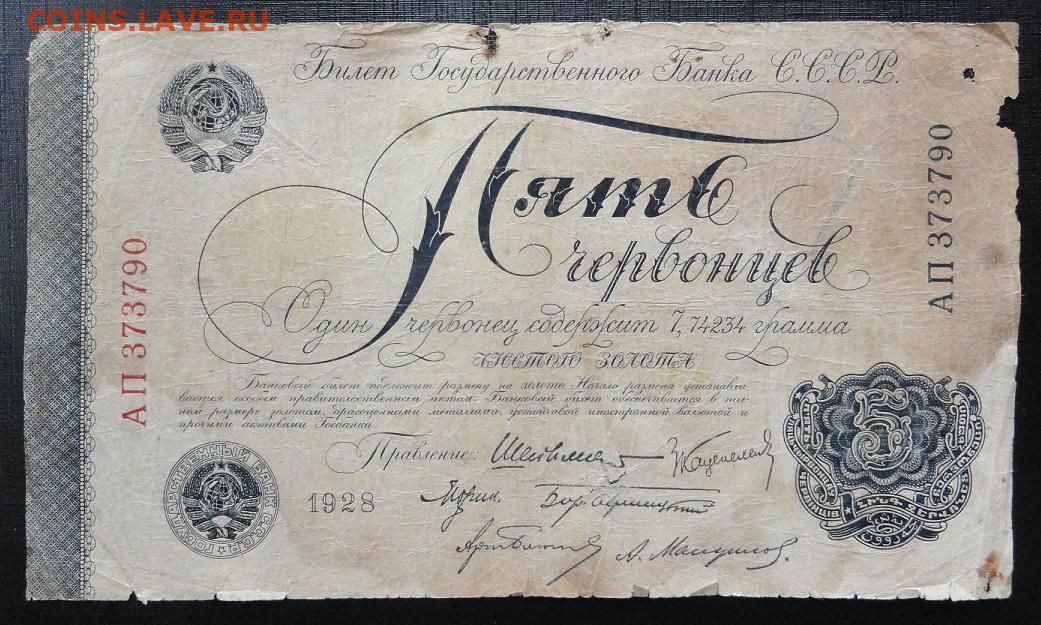 COINS.LAVE.RU
Билет Государственного Банка С.С.С.Р.
Пять
червонцев
Один червонец содержит 7,74234 грамма
чистого золота
Банковый билет подлежит размену на золото. Начало размена устанавли-
вается особым правительственным актом. Банковый билет обеспечивается в пол-
ном размере золотом, драгоценными металлами, устойчивой иностранной валютой и
прочими активами Госбанка.
Правление:
1928
АП 373790
АП 373790
ГОСУДАРСТВЕННЫЙ БАНК С.С.С.Р.
5